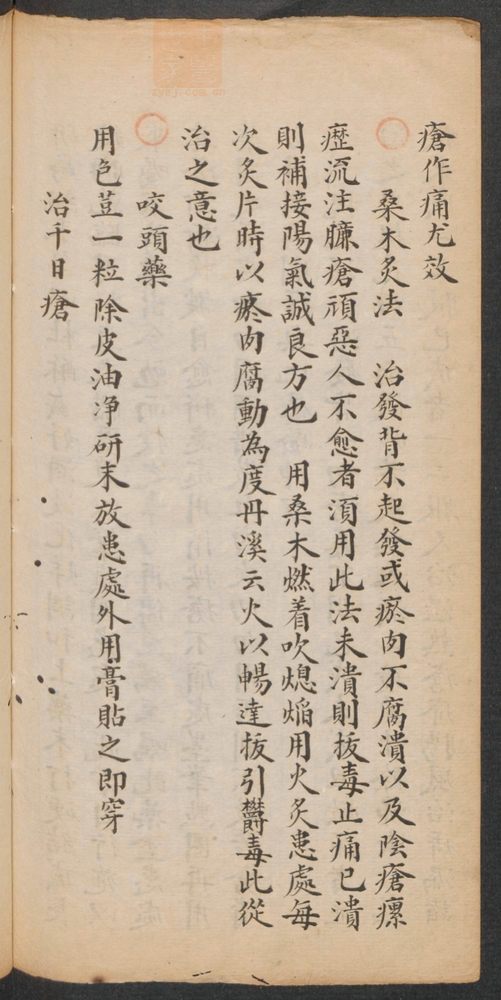 瘡作痛尤效
桑木炙法　治發背不起發或瘀肉不腐潰以及陰瘡瘰
癧流注臁瘡頑惡人不愈者須用此法未潰則拔毒止痛已潰
則補接陽氣誠良方也　用桑木燃着吹熄焰用火炙患處每
次炙片時以瘀肉腐動為度丹溪云火以暢達拔引欝毒此從
治之意也
咬頭藥
用色荳一粒除皮油净研末放患處外用膏貼之即穿
治千日瘡